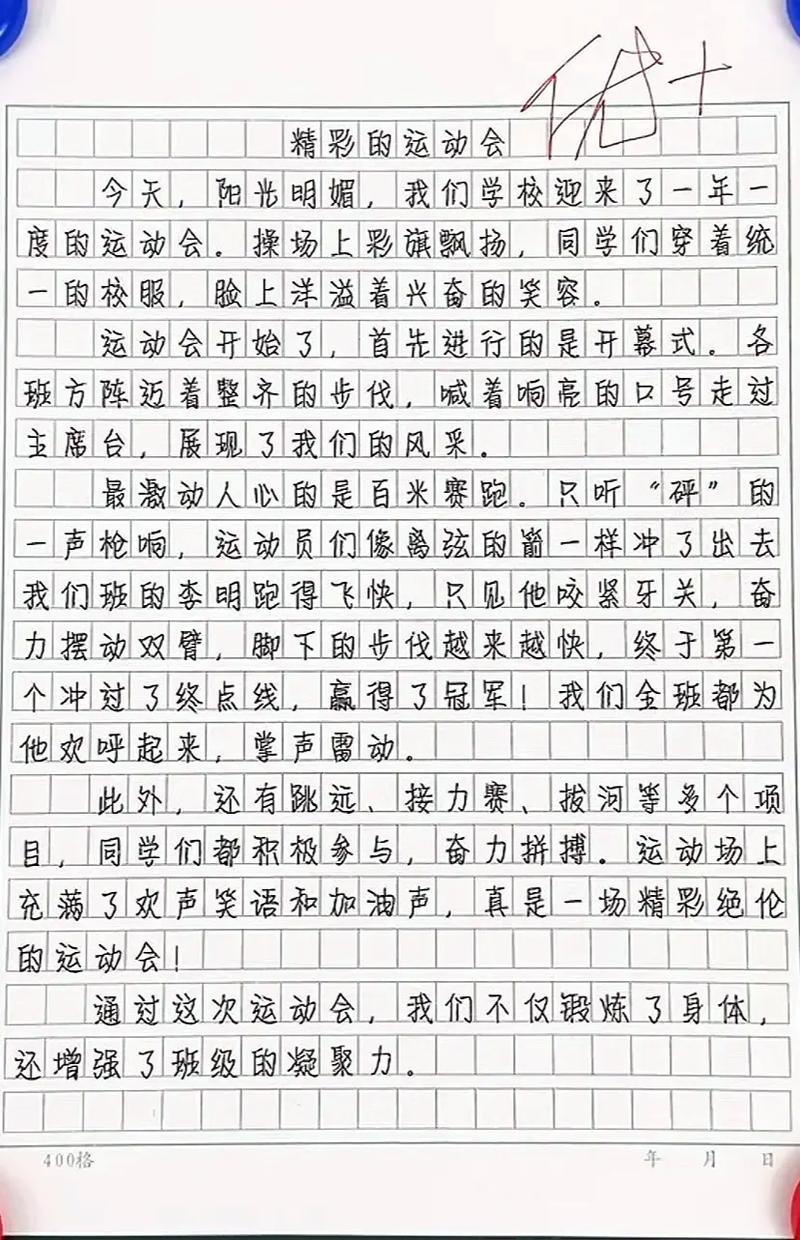 优+
精彩的运动会
今天，阳光明媚，我们学校迎来了一年一
度的运动会。操场上彩旗飘扬，同学们穿着统
一的校服，脸上洋溢着兴奋的笑容。
运动会开始了，首先进行的是开幕式。各
班方阵迈着整齐的步伐，喊着响亮的口号走过
主席台，展现了我们的风采。
最激动人心的是百米赛跑。只听“砰”的
一声枪响，运动员们像离弦的箭一样冲了出去
我们班的李明跑得飞快，只见他咬紧牙关，奋
力摆动双臂，脚下的步伐越来越快，终于第一
个冲过了终点线，赢得了冠军！我们全班都为
他欢呼起来，掌声雷动。
此外，还有跳远、接力赛、拔河等多个项
目，同学们都积极参与，奋力拼搏。运动场上
充满了欢声笑语和加油声，真是一场精彩绝伦
的运动会！
通过这次运动会，我们不仅锻炼了身体，
还增强了班级的凝聚力。
400格 年 月 日